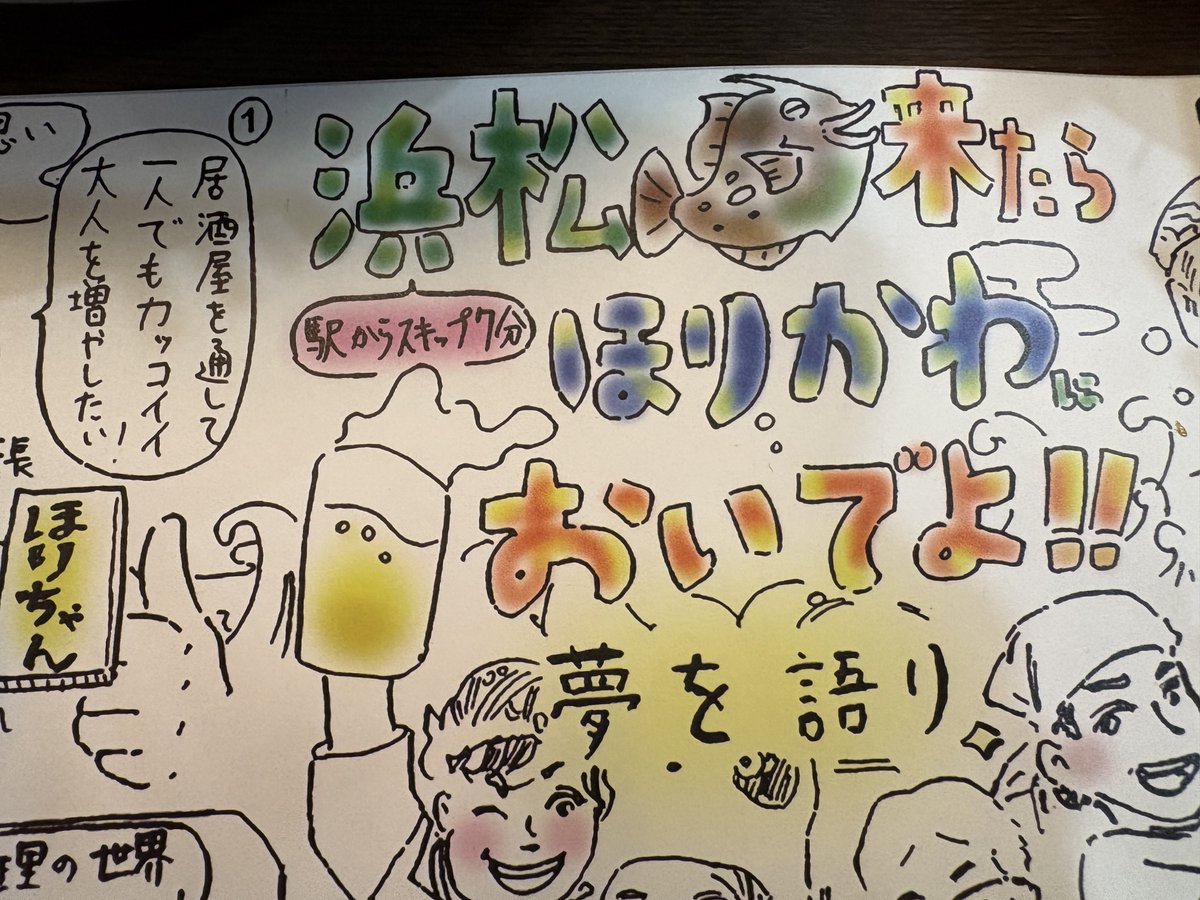 浜松来たら
駅からスキップ7分
ほりかわに
おいでよ!!
①
居酒屋を通して
一人でもカッコイイ
大人を増やしたい!
思い
張
ほりちゃん
夢を語り
の世界